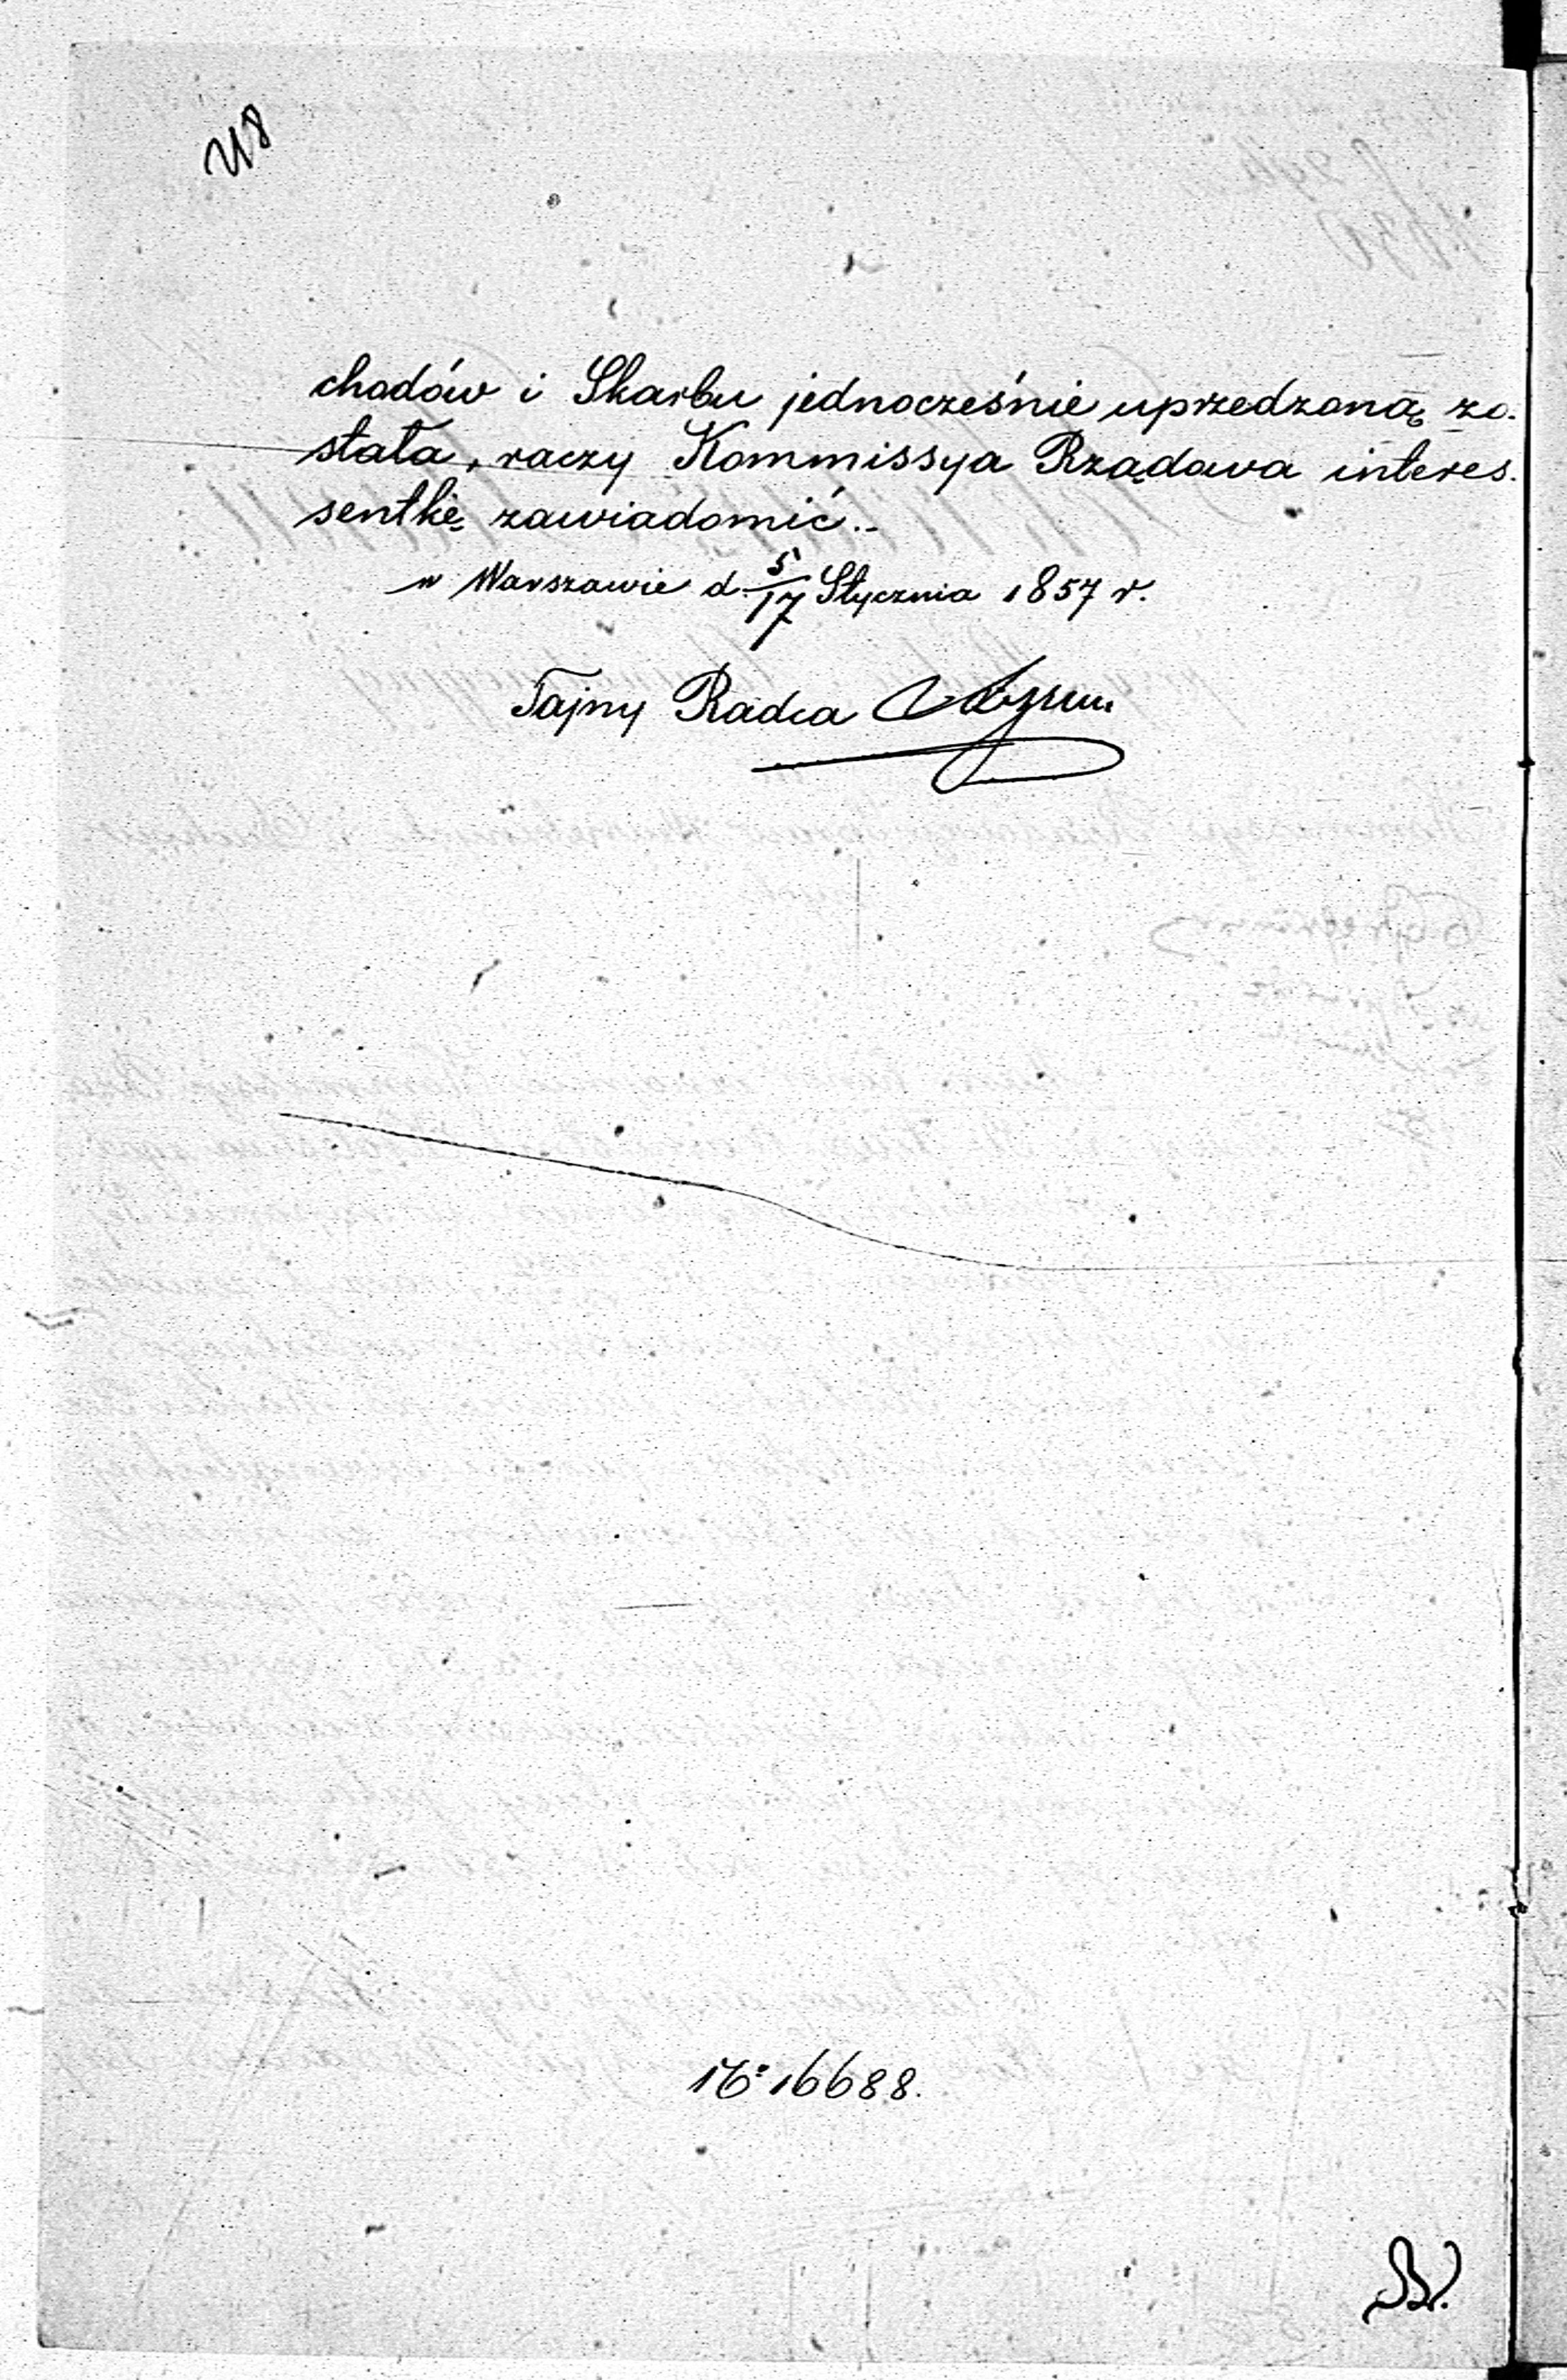 chodów i Skarbu jednocześnie uprzedzoną zo.
stała, raczy Kommissya Rządowa interes.
sentkę zawiadomić..
w Warszawie d. 5/17 Stycznia 1857 r.
Tajny Radca
№ 16688.